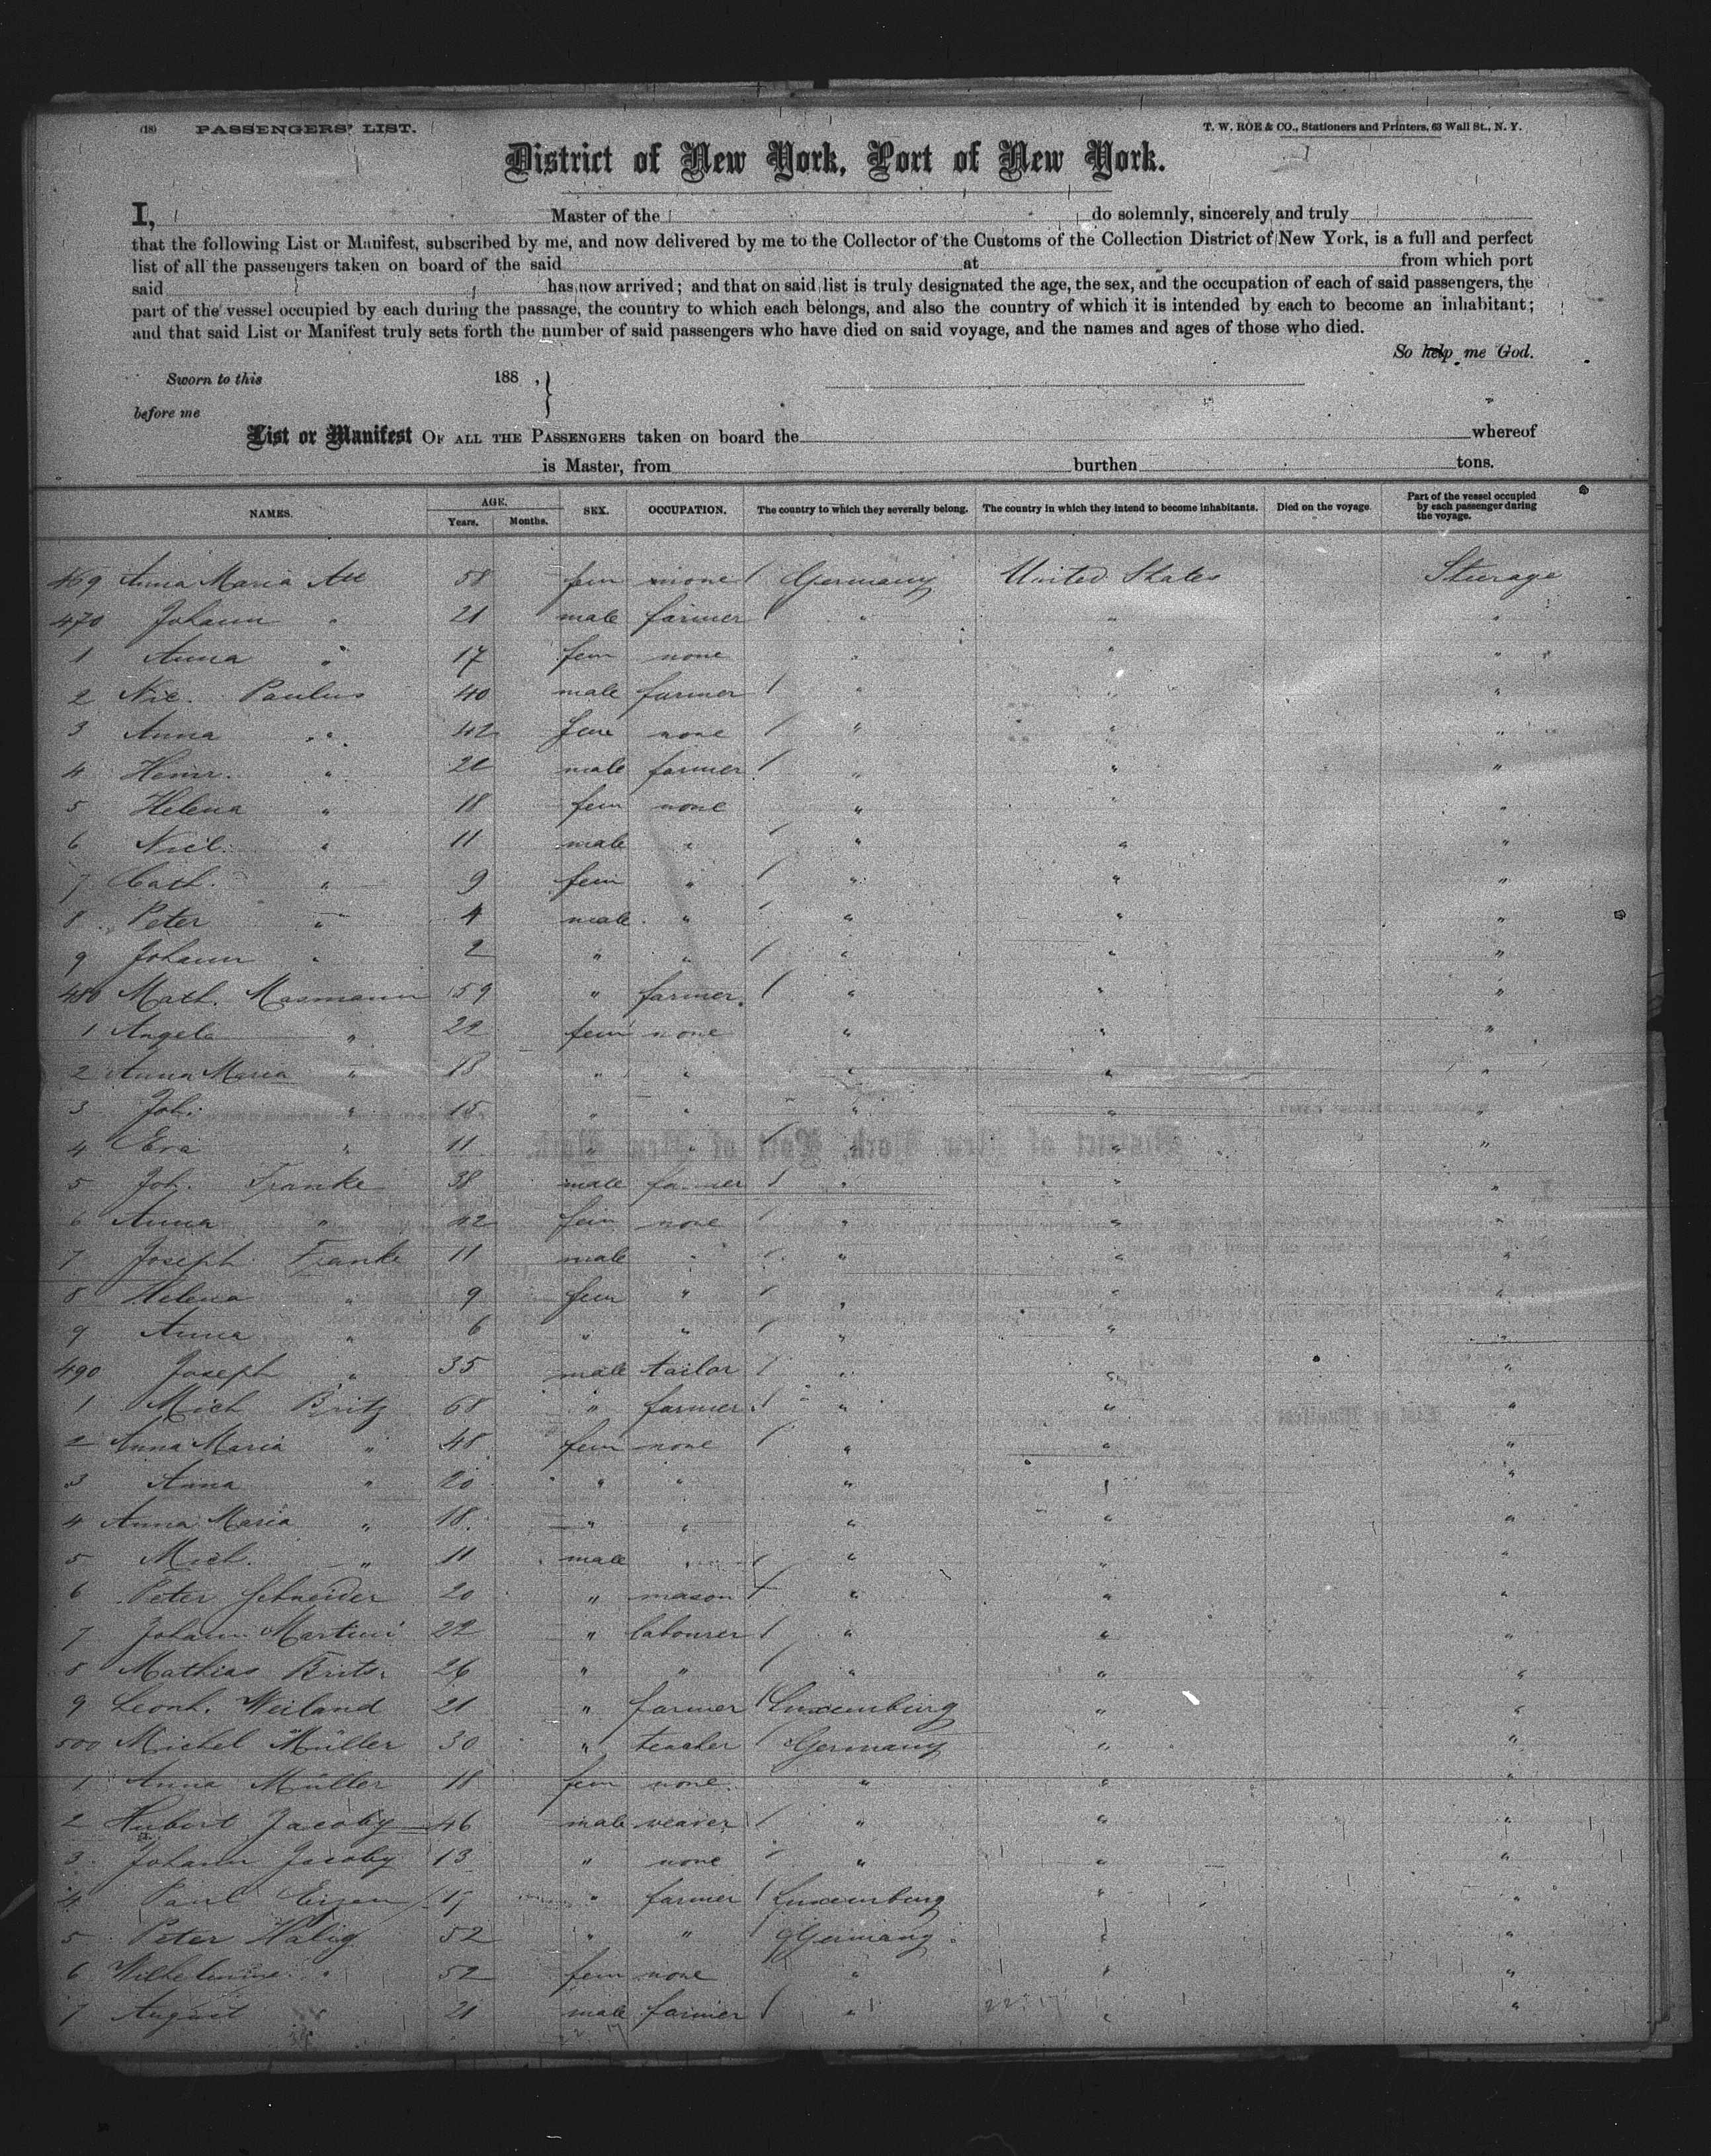 (18) PASSENGERS' LIST.
T. W. ROE & CO., Stationers and Printers, 63 Wall St., N. Y.
District of New York, Port of New York.
I, Master of the do solemnly, sincerely and truly
that the following List or Manifest, subscribed by me, and now delivered by me to the Collector of the Customs of the Collection District of New York, is a full and perfect
list of all the passengers taken on board of the said at from which port
said has now arrived; and that on said list is truly designated the age, the sex, and the occupation of each of said passengers, the
part of the vessel occupied by each during the passage, the country to which each belongs, and also the country of which it is intended by each to become an inhabitant;
and that said List or Manifest truly sets forth the number of said passengers who have died on said voyage, and the names and ages of those who died.
So help me God.
Sworn to this 188 ,
before me
List or Manifest OF ALL THE PASSENGERS taken on board the whereof
is Master, from burthen tons.
NAMES. AGE. Years. Months. SEX. OCCUPATION. The country to which they severally belong. The country in which they intend to become inhabitants. Died on the voyage. Part of the vessel occupied by each passenger during the voyage.
469 Anna Maria 58 fem none Germany United States Steerage
470 Johann " 21 male farmer " " "
1 Anna " 17 fem none " " "
2 Nic. Paulus 40 male farmer " " "
3 Anna " 42 fem none " " "
4 Heinr. " male farmer " " "
5 Helena " 18 fem none " " "
6 " 11 male " " " "
7 Cath. " 9 fem " " " "
8 Peter " 4 male " " " "
9 Johann " 2 " " " " "
480 Math. Masmann 59 " farmer " " "
1 Angela " 22 fem none " " "
2 Anna Maria " " " " " "
3 Joh. " 15 " " " " "
4 Eva " 11 " " " " "
5 Joh. Franke 38 male farmer " " "
6 Anna " 42 fem none " " "
7 Joseph Franke 11 male " " " "
8 Helena " 9 fem " " " "
9 Anna " 6 " " " " "
490 Joseph " 35 male tailor " " "
1 Mich Britz 68 " farmer " " "
2 Anna Maria " 48 fem none " " "
3 Anna " 20 " " " " "
4 Anna Maria " 18 " " " " "
5 Mich. " 11 male " " " "
6 Peter Schneider 20 " mason " " "
7 Johann Martini 22 " labourer " " "
8 Mathias Brits. 26 " " " " "
9 Leonh. Weiland 21 " farmer Luxemburg " "
500 Michel Müller 30 " teacher Germany " "
1 Anna Müller 18 fem none " " "
2 Hubert Jacoby 46 male weaver " " "
3 Johann Jacoby 13 " none " " "
4 Paul " farmer Luxemburg " "
5 Peter Halig 52 " " Germany " "
6 Wilhelmine " 52 fem none " " "
7 August " 21 male farmer " " "